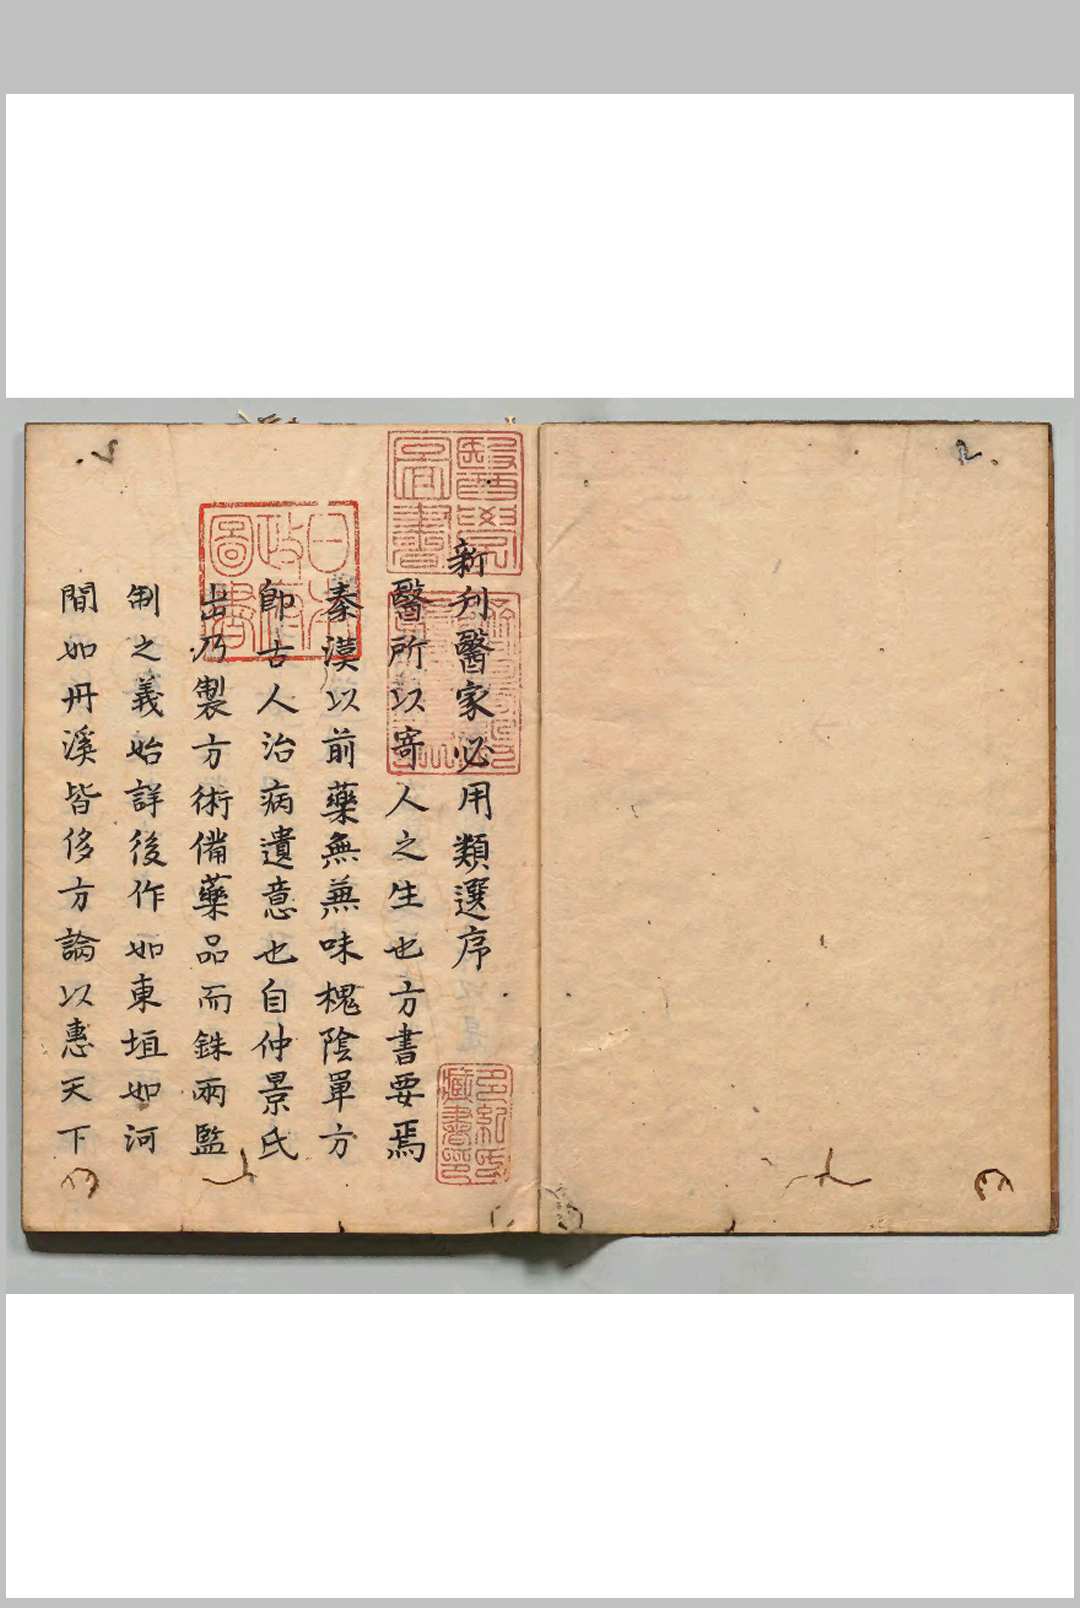 新刋醫家必用類選序
醫所以寄人之生也方書要焉
秦漠以前藥無兼味槐陰單方
卽古人治病遺意也自仲景氏
出乃製方術備藥品而銖兩監
制之義始詳後作如東垣如河
間如丹溪皆侈方論以惠天下
醫學圖書
日本政府圖書
藏書印